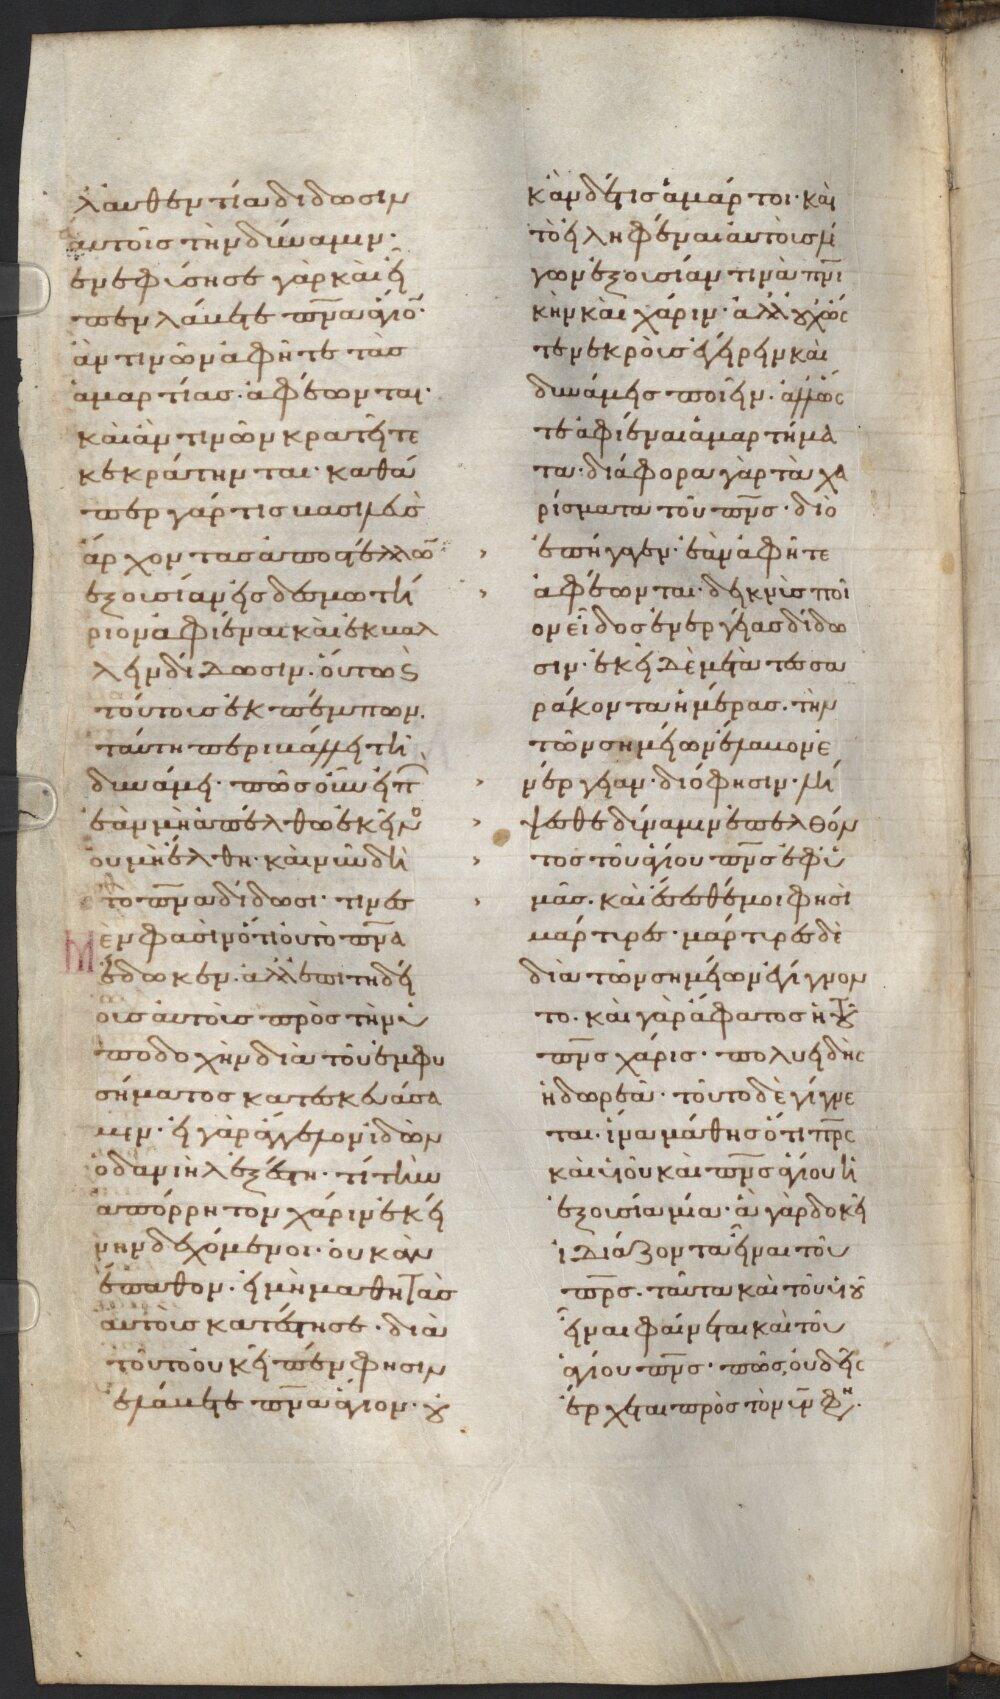 λ' αυθεντίαν δίδωσιν
αυτοῖς τὴν δύναμιν·
ενεφύσησε γὰρ καὶ εἶ
πεν λάβετε πνα ἅγιον·
ἄν τινων ἀφῆτε τὰς
ἁμαρτίας· ἀφέωνται·
καὶ ἄν τινων κρατεῖτε
κεκράτηνται· καθά
περ γάρ τις βασιλεὺς
ἄρχοντας ἀποστέλλων
ἐξουσίαν εἰς δεσμωτή
ριον ἀφιέναι καὶ ἐκβαλ
λειν δίδωσιν· οὕτως
τούτους ἐκπέμπων·
ταύτη περιβάλλει τῆ
δυνάμει· πῶς οὖν εἶπ
ἐὰν μὴ ἀπέλθω ἐκεῖνο
οὐ μὴ ἔλθη· καὶ νῦν δὴ
το πνα δίδωσι· τινες
Μὲν φασὶν ὅτι οὐ τὸ πνα
ἔδωκεν· ἀλλ' ἐπιτηδεί
ους αὐτοὺς πρὸς τὴν ὑ
ποδοχὴν διὰ τοῦ ἐμφυ
σήματος κατεσκεύασα
μεν· εἰ γὰρ ἄγγελον ἰδὼν
ὁ δανιὴλ ἐξέστη· τί τὴν
ἀπόρρητον χάριν ἐκεί
νην δεχόμενοι· οὐκ ἂν
ἔπαθον· εἰ μὴ μαθητὰς
αὐτοὺς κατέστησε· διὰ
τοῦτο οὐκ εἶπεν φησιν
ἐλάβετε πνα ἅγιον· ȣ
κἀν δέ τις ἁμάρτοι· καὶ
τὸ εἰληφέναι αὐτοὺς μὲ
γων ἐξουσίαν τινὰ πνι
κὴν καὶ χάριν· ἀλλ' ȣχ ὥς
τε νεκροὺς ἐγείρειν καὶ
δυνάμεις ποιεῖν· ἀλλ' ὥς
τε ἀφιέναι ἁμαρτήμα
τα· διάφορα γὰρ τὰ χα
ρίσματα τοῦ πνς· διὸ
ἐπήγαγεν· ἐὰν ἀφῆτε
ἀφέωνται· δεικνὺς ποῖ
ον εἶδος ἐνεργείας δίδω
σιν· ἐκεῖ δὲ μετὰ τεσσα
ράκοντα ἡμέρας· τὴν
τῶν σημείων ἔλαβον ἐ
νέργειαν· διό φησιν· λή
ψεσθε δύναμιν ἐπελθόν
τος τοῦ ἁγίου πνς ἐφ' ὑ
μᾶς· καὶ ἔσεσθέ μοι φησὶ
μάρτυρες· μάρτυρες δὲ
διὰ τῶν σημείων ἐγίγνον
το· καὶ γὰρ ἄφατος ἡ τȣ
πνς χάρις· πολυειδὴς
ἡ δωρεά· τοῦτο δὲ γίγνε
ται· ἵνα μάθης ὅτι πρς
καὶ υἱοῦ καὶ πνς ἁγίου ἡ
ἐξουσία μία· ἃ γὰρ δοκεῖ
ἰδιάζοντα εἶναι τοῦ
πρς· ταῦτα καὶ τοῦ υἱȣ
εἶναι φαίνεται καὶ τοῦ
ἁγίου πνς· πῶς οὐδεὶς
ἔρχεται πρὸς τὸν υν φη·